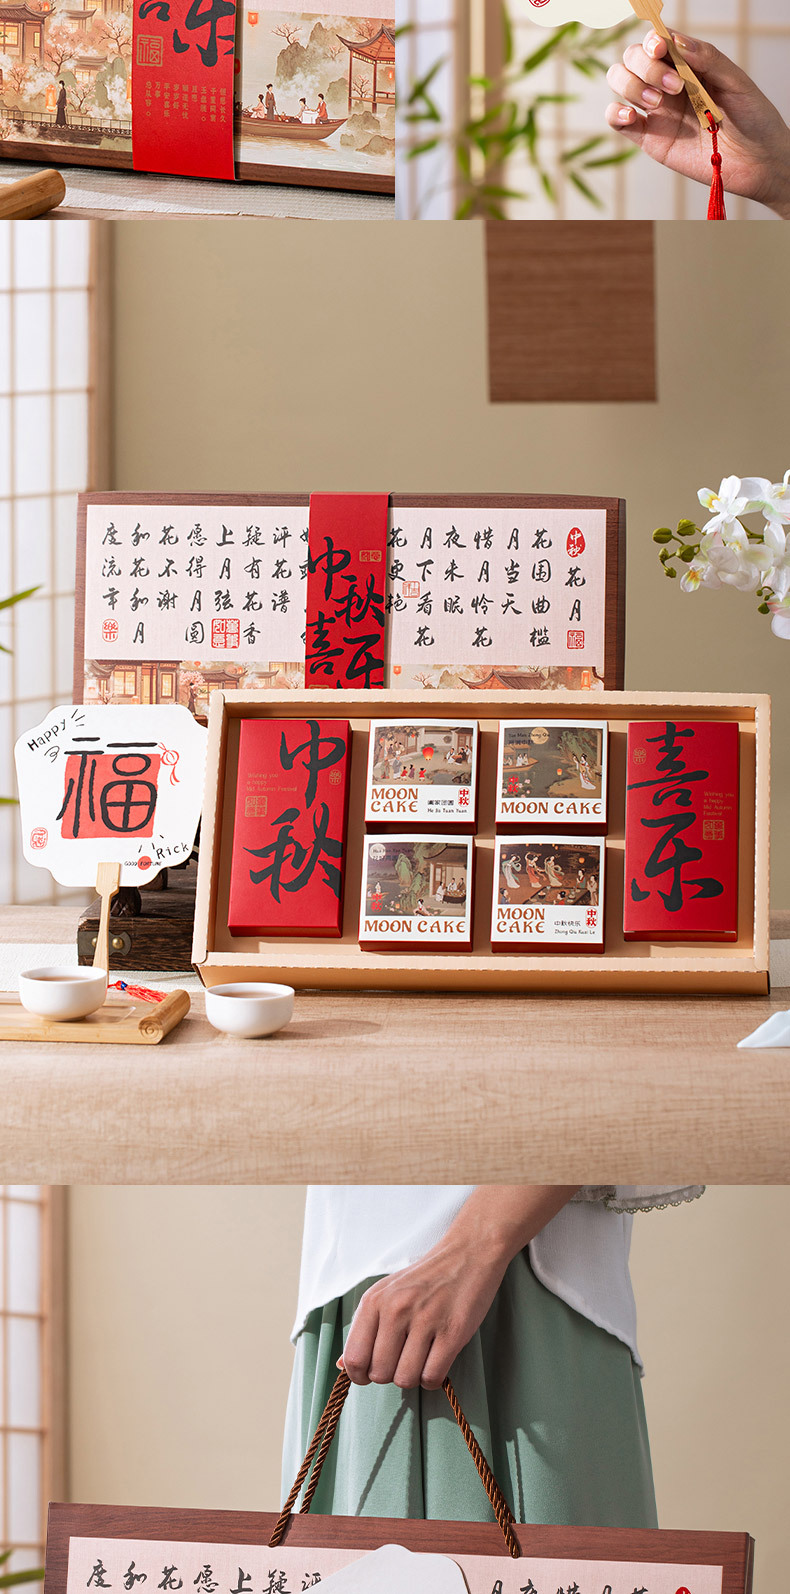 乐
福
中秋
花月
花围曲槛
月当天
惜月怜花
夜未眠
月下看花
花更艳
评花谱
疑有花香
上月弦
愿得月圆
花不谢
和花和月
度流年
中秋喜乐
Happy
福
Rick
GOOD FORTUNE
中秋
Wishing you
a happy
Mid Autumn
Festival
MOON
CAKE
中秋
阖家团圆
He Jia Tuan Yuan
MOON CAKE
MOON CAKE
MOON
CAKE
中秋
中秋快乐
Zhong Qiu Kuai Le
喜乐
Wishing you
a happy
Mid Autumn
Festival
度和花愿上疑评
月夜惜月花